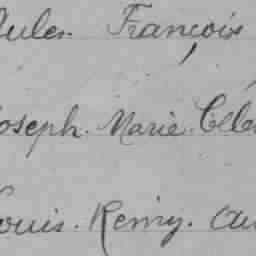 Jules. François
Joseph. Marie. Cél
Louis. Remy. Au